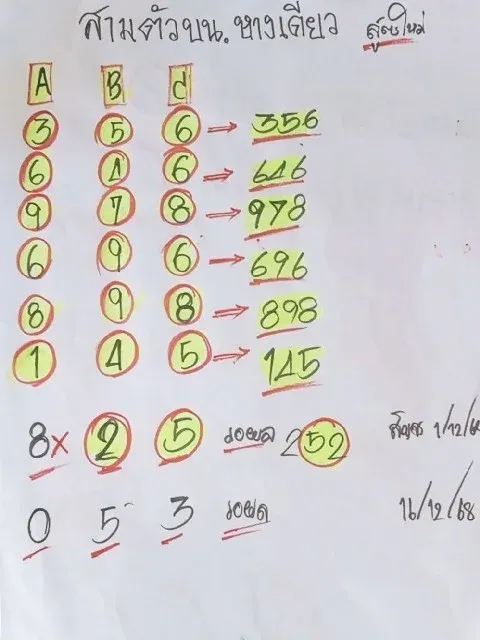 สามตัวบน.หางเดียว สูตรใหม่
A B C
3 5 6 → 356
6 4 6 → 646
9 7 8 → 978
6 9 6 → 696
8 9 8 → 898
1 4 5 → 145
8x 2 5 รอผล 252 1/12/68
0 5 3 รอผล 16/12/68